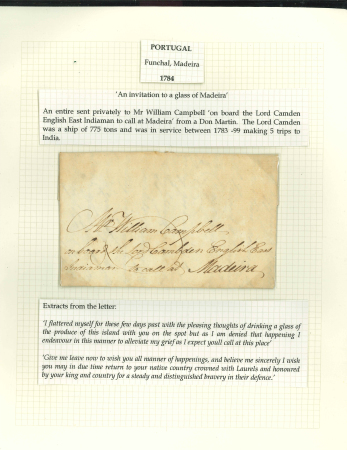 PORTUGAL
Funchal, Madeira
1784
'An invitation to a glass of Madeira'
An entire sent privately to Mr William Campbell 'on board the Lord Camden
English East Indiaman to call at Madeira' from a Don Martin. The Lord Camden
was a ship of 775 tons and was in service between 1783 -99 making 5 trips to
India.
Mr. William Campbell
on board the Lord Cambden English East
Indiaman to call at Madeira
Extracts from the letter:
'I flattered myself for these few days past with the pleasing thoughts of drinking a glass of
the produce of this island with you on the spot but as I am denied that happening I
endeavour in this manner to alleviate my grief as I expect youll call at this place'
'Give me leave now to wish you all manner of happenings, and believe me sincerely I wish
you may in due time return to your native country crowned with Laurels and honoured
by your king and country for a steady and distinguished bravery in their defence.'